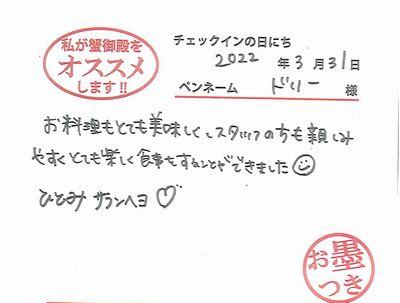 私が蟹御殿を
オススメ
します!!
チェックインの日にち
2022 年 3 月 31 日
ペンネーム ドリー 様
お料理もとても美味しく、スタッフの方も親しみ
やすくとても楽しく食事もすることができました
ひとみ サランヘヨ
お墨
つき